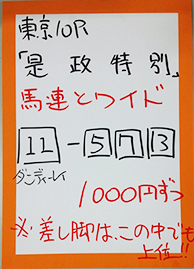 東京10R
「是政特別」
馬連とワイド
11-5 7 13
ダンディーレイ
1000円ずつ
※差し脚は、この中でも
上位!!